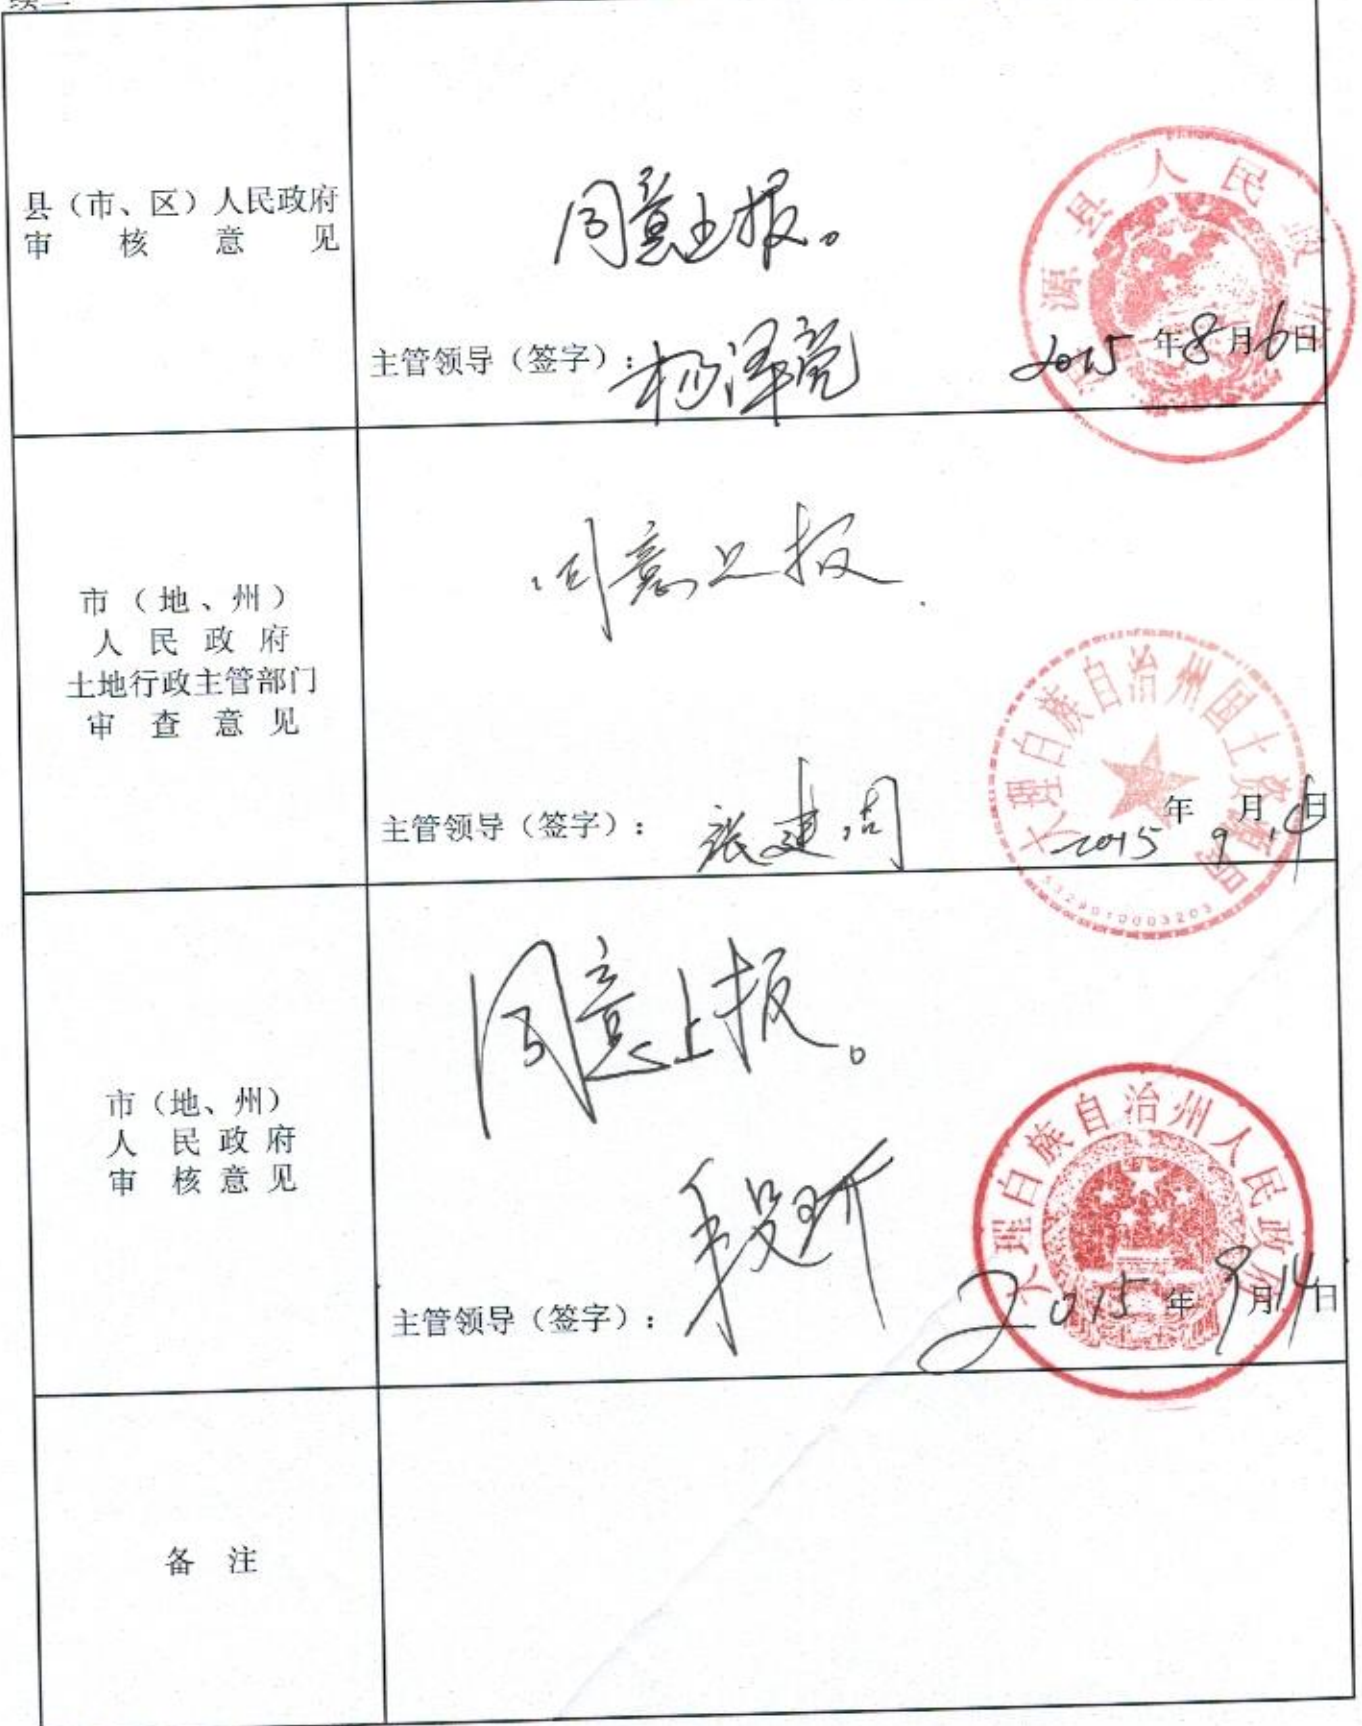 县（市、区）人民政府
审核意见
同意上报。
主管领导（签字）：杨泽亮
2015年8月6日
源县人民政府
市（地、州）
人民政府
土地行政主管部门
审查意见
同意上报
主管领导（签字）：张建
2015年9月日
大理白族自治州国土资源局
5329010003203
市（地、州）
人民政府
审核意见
同意上报。
主管领导（签字）：
2015年9月14日
大理白族自治州人民政府
备注